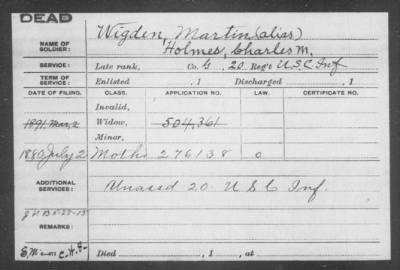 DEAD
Wigden, Martin (alias)
NAME OF SOLDIER: Holmes, Charles M.
SERVICE: Late rank, Co. G, 20 Reg't U.S.C. Inf
TERM OF SERVICE: Enlisted , 1 Discharged , 1
DATE OF FILING. CLASS. APPLICATION NO. LAW. CERTIFICATE NO.
Invalid,
1891 Mar. 2 Widow, 504,361
Minor,
1880 July 2 Moth 276138 0
ADDITIONAL SERVICES: Unassd 20 U S C Inf.
REMARKS:
Died , 1 , at